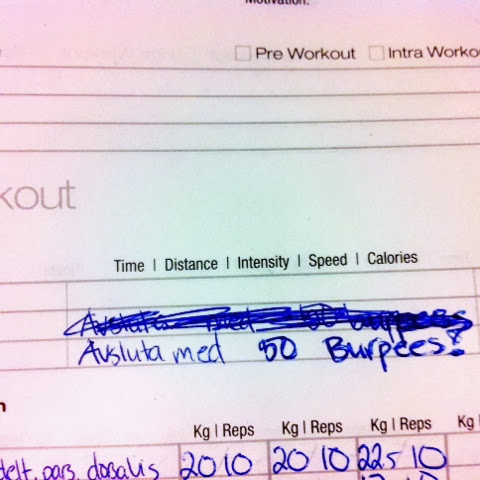 Motivation:
Pre Workout Intra Worko
kout
Time | Distance | Intensity | Speed | Calories
Avsluta med 50 burpees
Avsluta med 50 Burpees!
n
Kg | Reps Kg | Reps Kg | Reps Kg |
delt. pars. dosalis 20 10 20 10 22,5 10